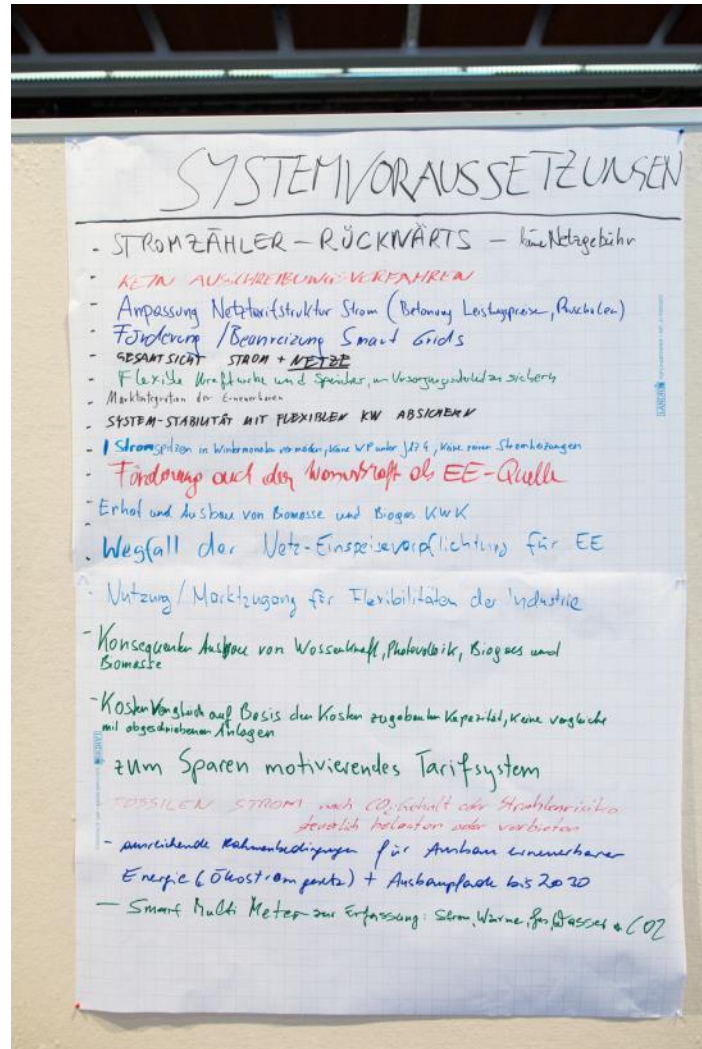 SYSTEMVORAUSSETZUNGEN
- STROMZÄHLER – RÜCKWÄRTS – keine Netzgebühr
- KEIN AUSSCHREIBUNGSVERFAHREN
- Anpassung Netztarifstruktur Strom (Betonung Leistungspreise, Pauschalen)
- Förderung / Beanreizung Smart Grids
- GESAMTSICHT STROM + NETZE
- Flexible Kraftwerke und Speicher, um zu sichern
- Marktintegration der Erneuerbaren
- SYSTEM-STABILITÄT MIT FLEXIBLEN KW ABSICHERN
- Stromspitzen in Wintermonaten vermeiden, keine WP unter JAZ 4, keine reinen Stromheizungen
- Förderung auch der als EE-Quelle
- Erhalt und Ausbau von Biomasse und Biogas KWK
- Wegfall der Netz-Einspeiseverpflichtung für EE
- Nutzung / Marktzugang für Flexibilitäten der Industrie
- Konsequenter Ausbau von Wasserkraft, Photovoltaik, Biogas und
Biomasse
- Kosten Vergleich auf Basis der Kosten zugebauter Kapazität, keine Vergleiche
mit abgeschriebenen Anlagen
zum Sparen motivierendes Tarifsystem
FOSSILEN STROM nach CO2 Gehalt oder Strahlenrisiko
steuerlich belasten oder verbieten
- ausreichende Rahmenbedingungen für Ausbau erneuerbarer
Energie (Ökostromgesetz) + Ausbaupfade bis 2030
- Smart Multi Meter zur Erfassung: Strom, Wärme, Gas, Wasser + CO2
LANDRÉ
LANDRÉ